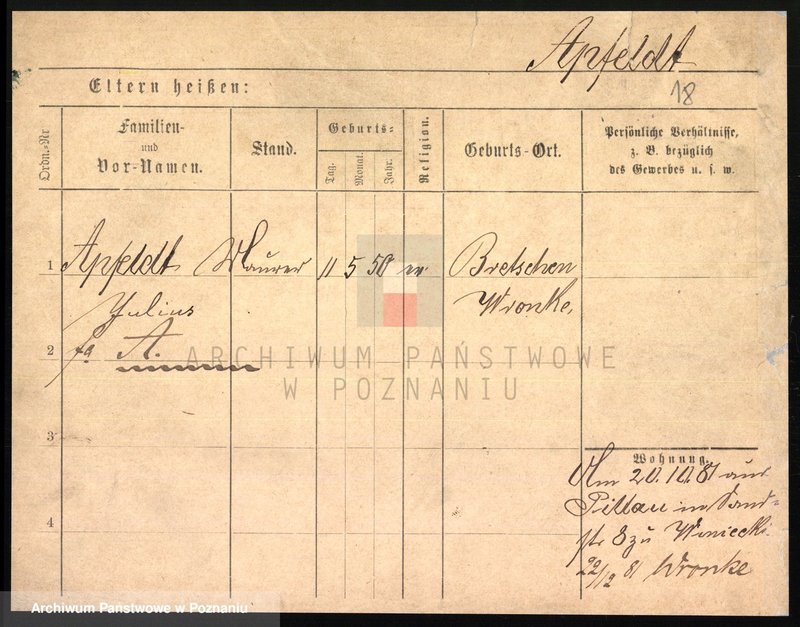 Apfeldt
18
Eltern heißen:
Ordn.-Nr
Familien-
und
Vor-Namen.
Stand.
Geburts-
Tag.
Monat.
Jahr.
Religion.
Geburts-Ort.
Persönliche Verhältnisse,
z. B. bezüglich
des Gewerbes u. s. w.
1 Apfeldt Maurer 11 5 50 ev. Bretschen
Julius Wronke.
2 A.
3
4
ARCHIWUM PAŃSTWOWE
W POZNANIU
Wohnung.
Am 20.10.81 aus
Pillau in Sand-
str 8 zu
22/12 81 Wronke
Archiwum Państwowe w Poznaniu